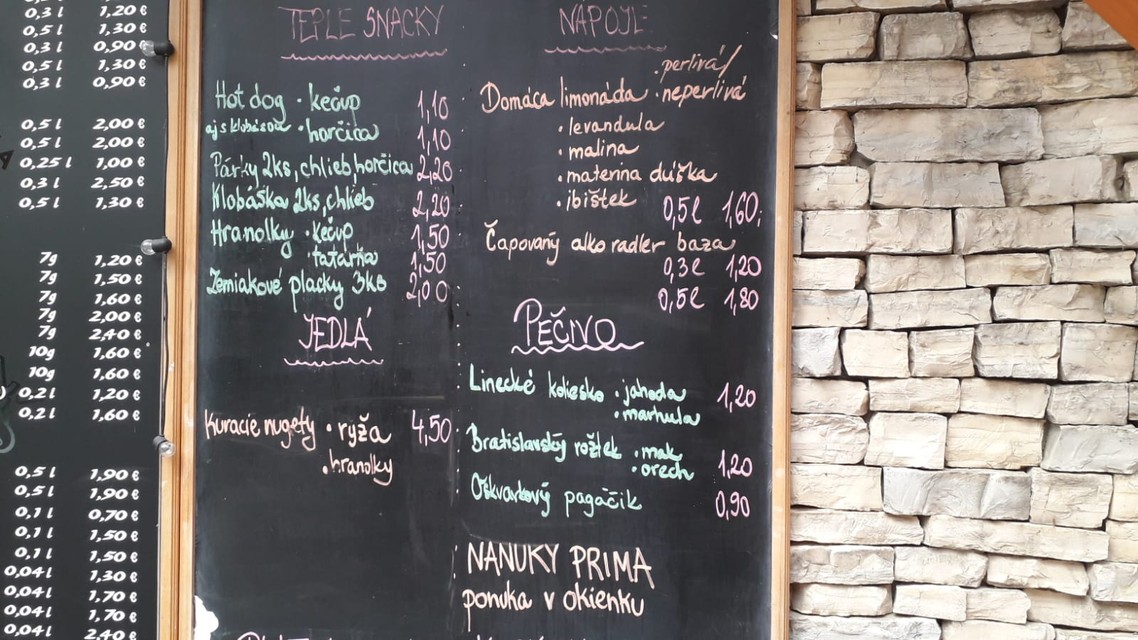 0,3 l 1,20 €
0,5 l 1,30 €
0,3 l 0,90 €
0,5 l 1,30 €
0,3 l 0,90 €
0,5 l 2,00 €
0,5 l 2,00 €
0,25 l 1,00 €
0,3 l 2,50 €
0,5 l 1,30 €
7g 1,20 €
7g 1,50 €
7g 1,60 €
7g 2,00 €
7g 2,40 €
10g 1,60 €
10g 1,60 €
0,2 l 1,20 €
0,2 l 1,60 €
0,5 l 1,90 €
0,5 l 1,90 €
0,1 l 0,70 €
0,1 l 1,50 €
0,1 l 1,50 €
0,04 l 1,30 €
0,04 l 1,70 €
0,04 l 1,70 €
0,04 l 2,40 €
TEPLÉ SNACKY
Hot dog · kečup 1,10
aj s klobásou · horčica 1,10
Párky 2ks, chlieb, horčica 2,20
Klobáska 2ks, chlieb 2,20
Hranolky · kečup 1,50
· tatárka 1,50
Zemiakové placky 3ks 2,00
JEDLÁ
Kuracie nugety · ryža 4,50
· hranolky
NÁPOJE
· perlivá/
Domáca limonáda · neperlivá
· levandula
· malina
· materina dúška
· ibištek 0,5l 1,60
Čapovaný alko radler baza
0,3l 1,20
0,5l 1,80
PEČIVO
Linecké koliesko · jahoda 1,20
· marhula
Bratislavský rožtek · mak
· orech 1,20
Oškvarkový pagáčik 0,90
NANUKY PRIMA
ponuka v okienku